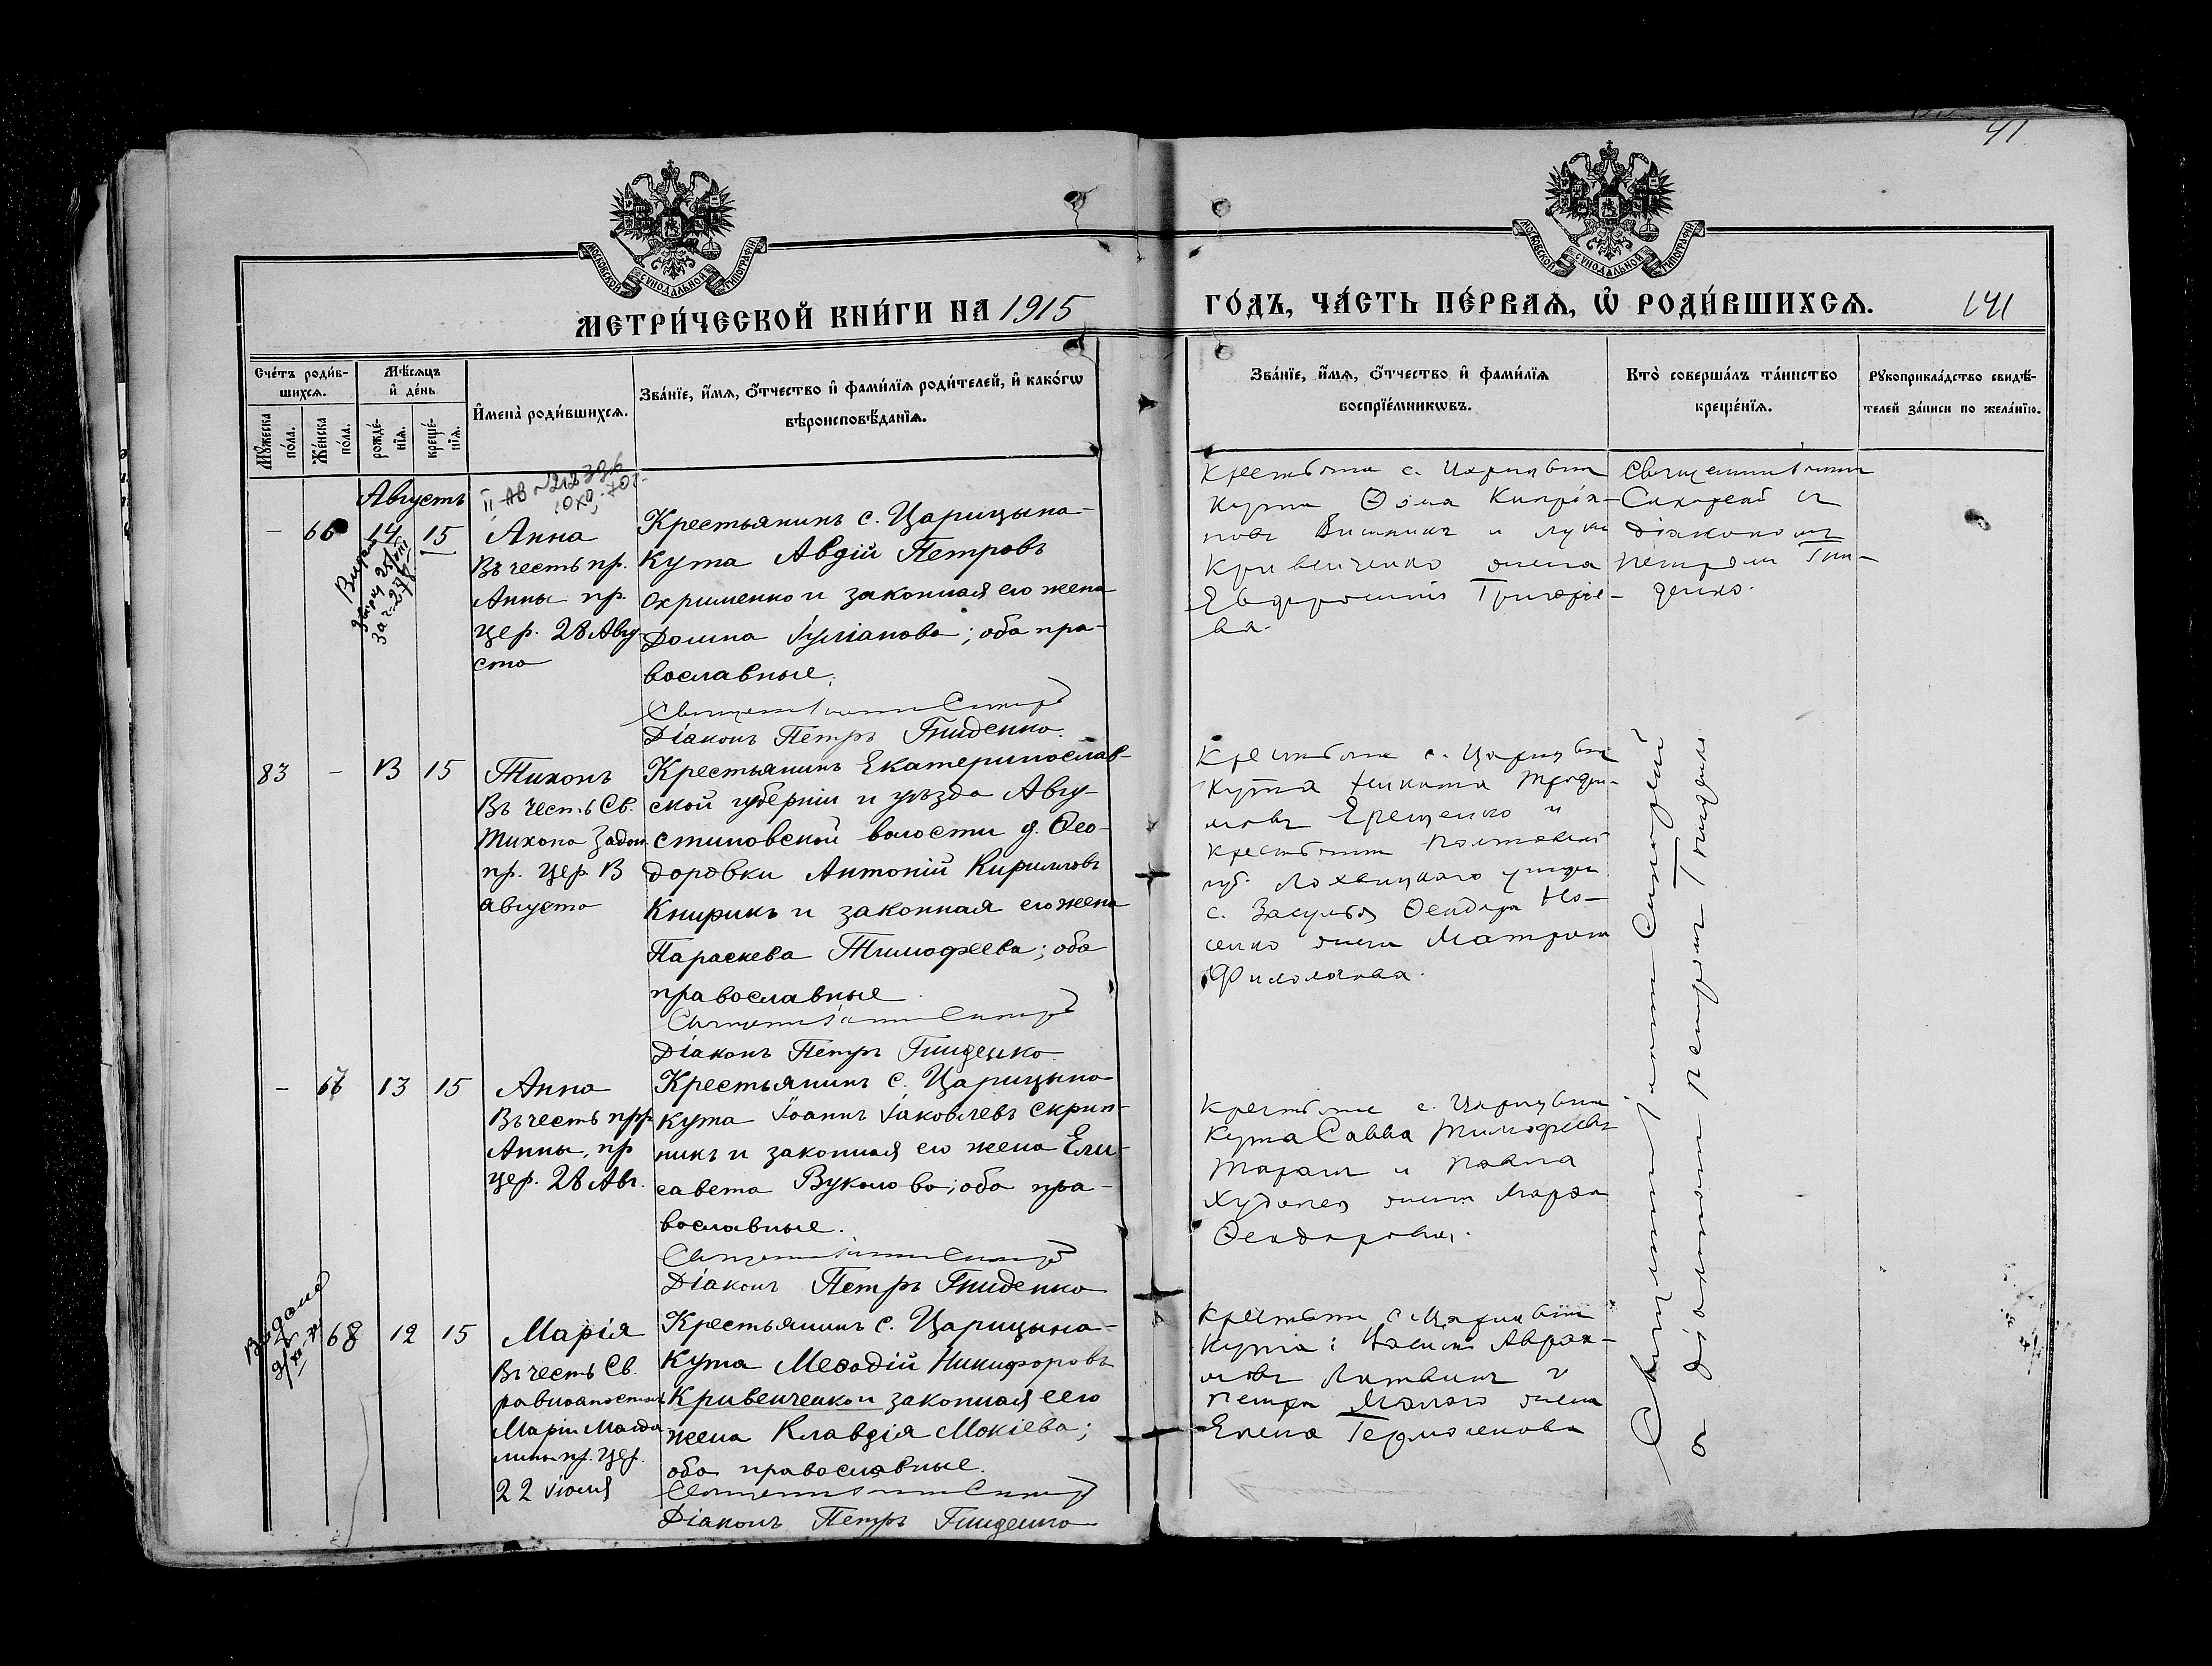 41
МОСКОВСКОЙ СѴНОДАЛЬНОЙ ТИПОГРАФІИ
МОСКОВСКОЙ СѴНОДАЛЬНОЙ ТИПОГРАФІИ
МЕТРИ́ЧЕСКОЙ КНИ́ГИ НА 1915
ГО́ДЪ, ЧА́СТЬ ПЕ́РВАѦ, Ѡ҆ РОДИ́ВШИХСѦ.
141
Сче́тъ роди́в-
шихсѧ.
Мꙋ́жеска
по́ла.
Же́нска
по́ла.
Мѣ́сѧцъ
и҆ де́нь
рожде́-
нїѧ.
креще́-
нїѧ.
И҆мена̀ роди́вшихсѧ.
Зва́нїе, и҆́мѧ, ѻ҆́тчество и҆ фами́лїѧ роди́телей, и҆ како́гѡ
вѣроисповѣ́данїѧ.
Зва́нїе, и҆́мѧ, ѻ҆́тчество и҆ фами́лїѧ
воспрїе́мникѡвъ.
Кто̀ соверша́лъ та́инство
креще́нїѧ.
Рꙋкоприкла́дство свидѣ́-
телей за́писи по жела́нїю.
Августъ
— 66 14 15
Анна
Въ честь пр.
Анны пр.
цер. 28 Авгу-
ста
Крестьянинъ с. Царицына-
Кута Авдій Петровъ
Охрименко и законная его жена
Домна Іуліанова; оба пра-
вославные.
Діаконъ Петръ Гниденко.
Крестьяне с. Царицына
Кута Ѳома Кипрія-
новъ Винникъ и Луки
Кривенченко жена
Евфросинія Григоріе-
ва.
Священникъ
Сикорскій съ
діакономъ
Петромъ Гни-
денко.
83 — 13 15
Тихонъ
Въ честь Св.
Тихона Задон.
пр. цер. 13
августа
Крестьянинъ Екатеринослав-
ской губерніи и уѣзда Авгу-
стиновской волости д. Ѳео-
доровки Антоній Кирилловъ
Книрикъ и законная его жена
Параскева Тимофеева; оба
православные.
Діаконъ Петръ Гниденко
Крестьяне с. Царицына
Кута Никита Трофи-
мовъ Ерещенко и
крестьянин Полтавской
губ. Лохвицкаго уѣзда
с. Засулья Ѳеодора Но-
сенко жена Матрона
— 67 13 15
Анна
Въ честь прр.
Анны, пр
цер. 28 Авг.
Крестьянинъ с. Царицына-
Кута Іоаннъ Іаковлевъ Скрип-
никъ и законная его жена Ели-
савета Вуколова; оба пра-
вославные.
Діаконъ Петръ Гниденко
Крестьяне с. Царицына
Кута Савва Тимофеевъ
Таранъ и Павла
жена Марѳа
Ѳеодорова.
68 12 15
Марія
Въ честь Св.
равноапостол.
Маріи Магда
лины пр. цер.
22 іюля
Крестьянинъ с. Царицына-
Кута Меѳодій Никифоровъ
Кривенченко и законная его
жена Клавдія Мокіева;
оба православные.
Діаконъ Петръ Гниденко
Крестьяне с. Царицына
Кута: Авраа-
мовъ Литвинъ и
Петра Малаго жена
Елена Гермогенова
Священникъ Сикорскій
съ діакономъ Петромъ Гниденко